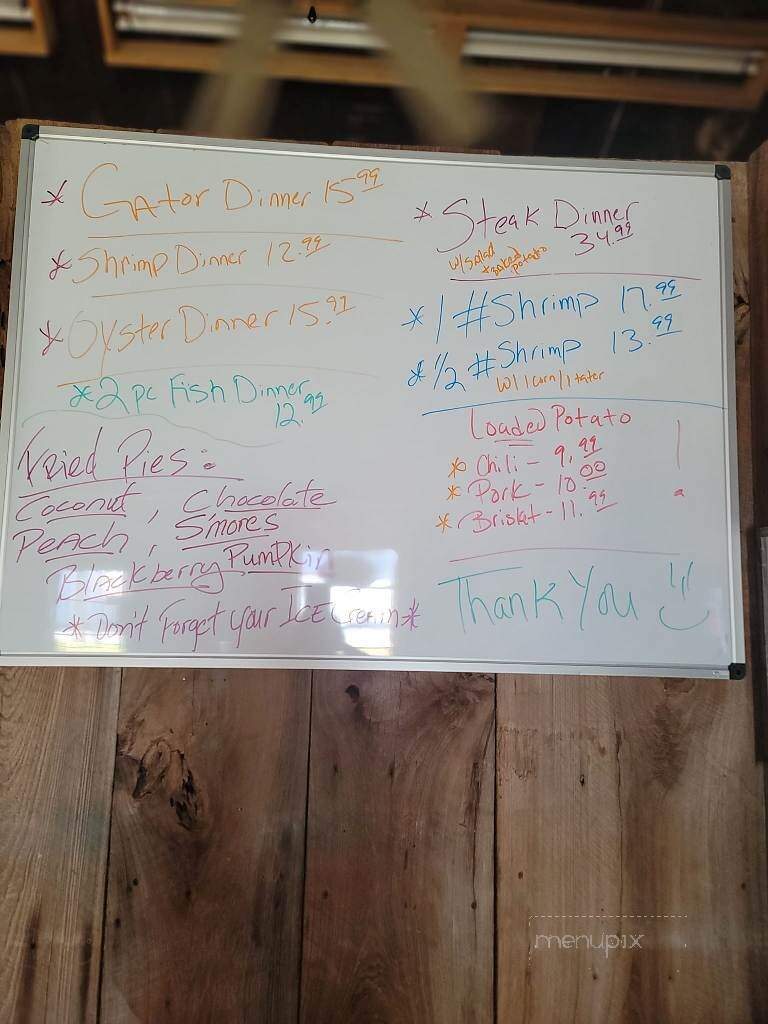 * Gator Dinner 15.99
* Shrimp Dinner 12.99
* Oyster Dinner 15.99
* 2 pc Fish Dinner
12.99
Fried Pies:
Coconut, Chocolate
Peach, S'mores
Blackberry Pumpkin
* Don't Forget your ICE Cream *
* Steak Dinner
34.99
w/salad
+ Baked potato
* 1 # Shrimp 17.99
* 1/2 # Shrimp 13.99
w/ 1 corn / 1 tater
Loaded Potato
* Chili - 9.99
* Pork - 10.00
* Brisket - 11.99
Thank You
menupix